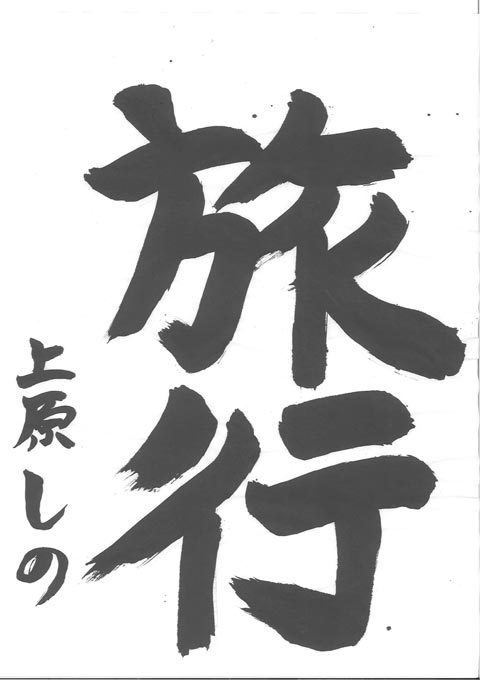 旅行
上原しの